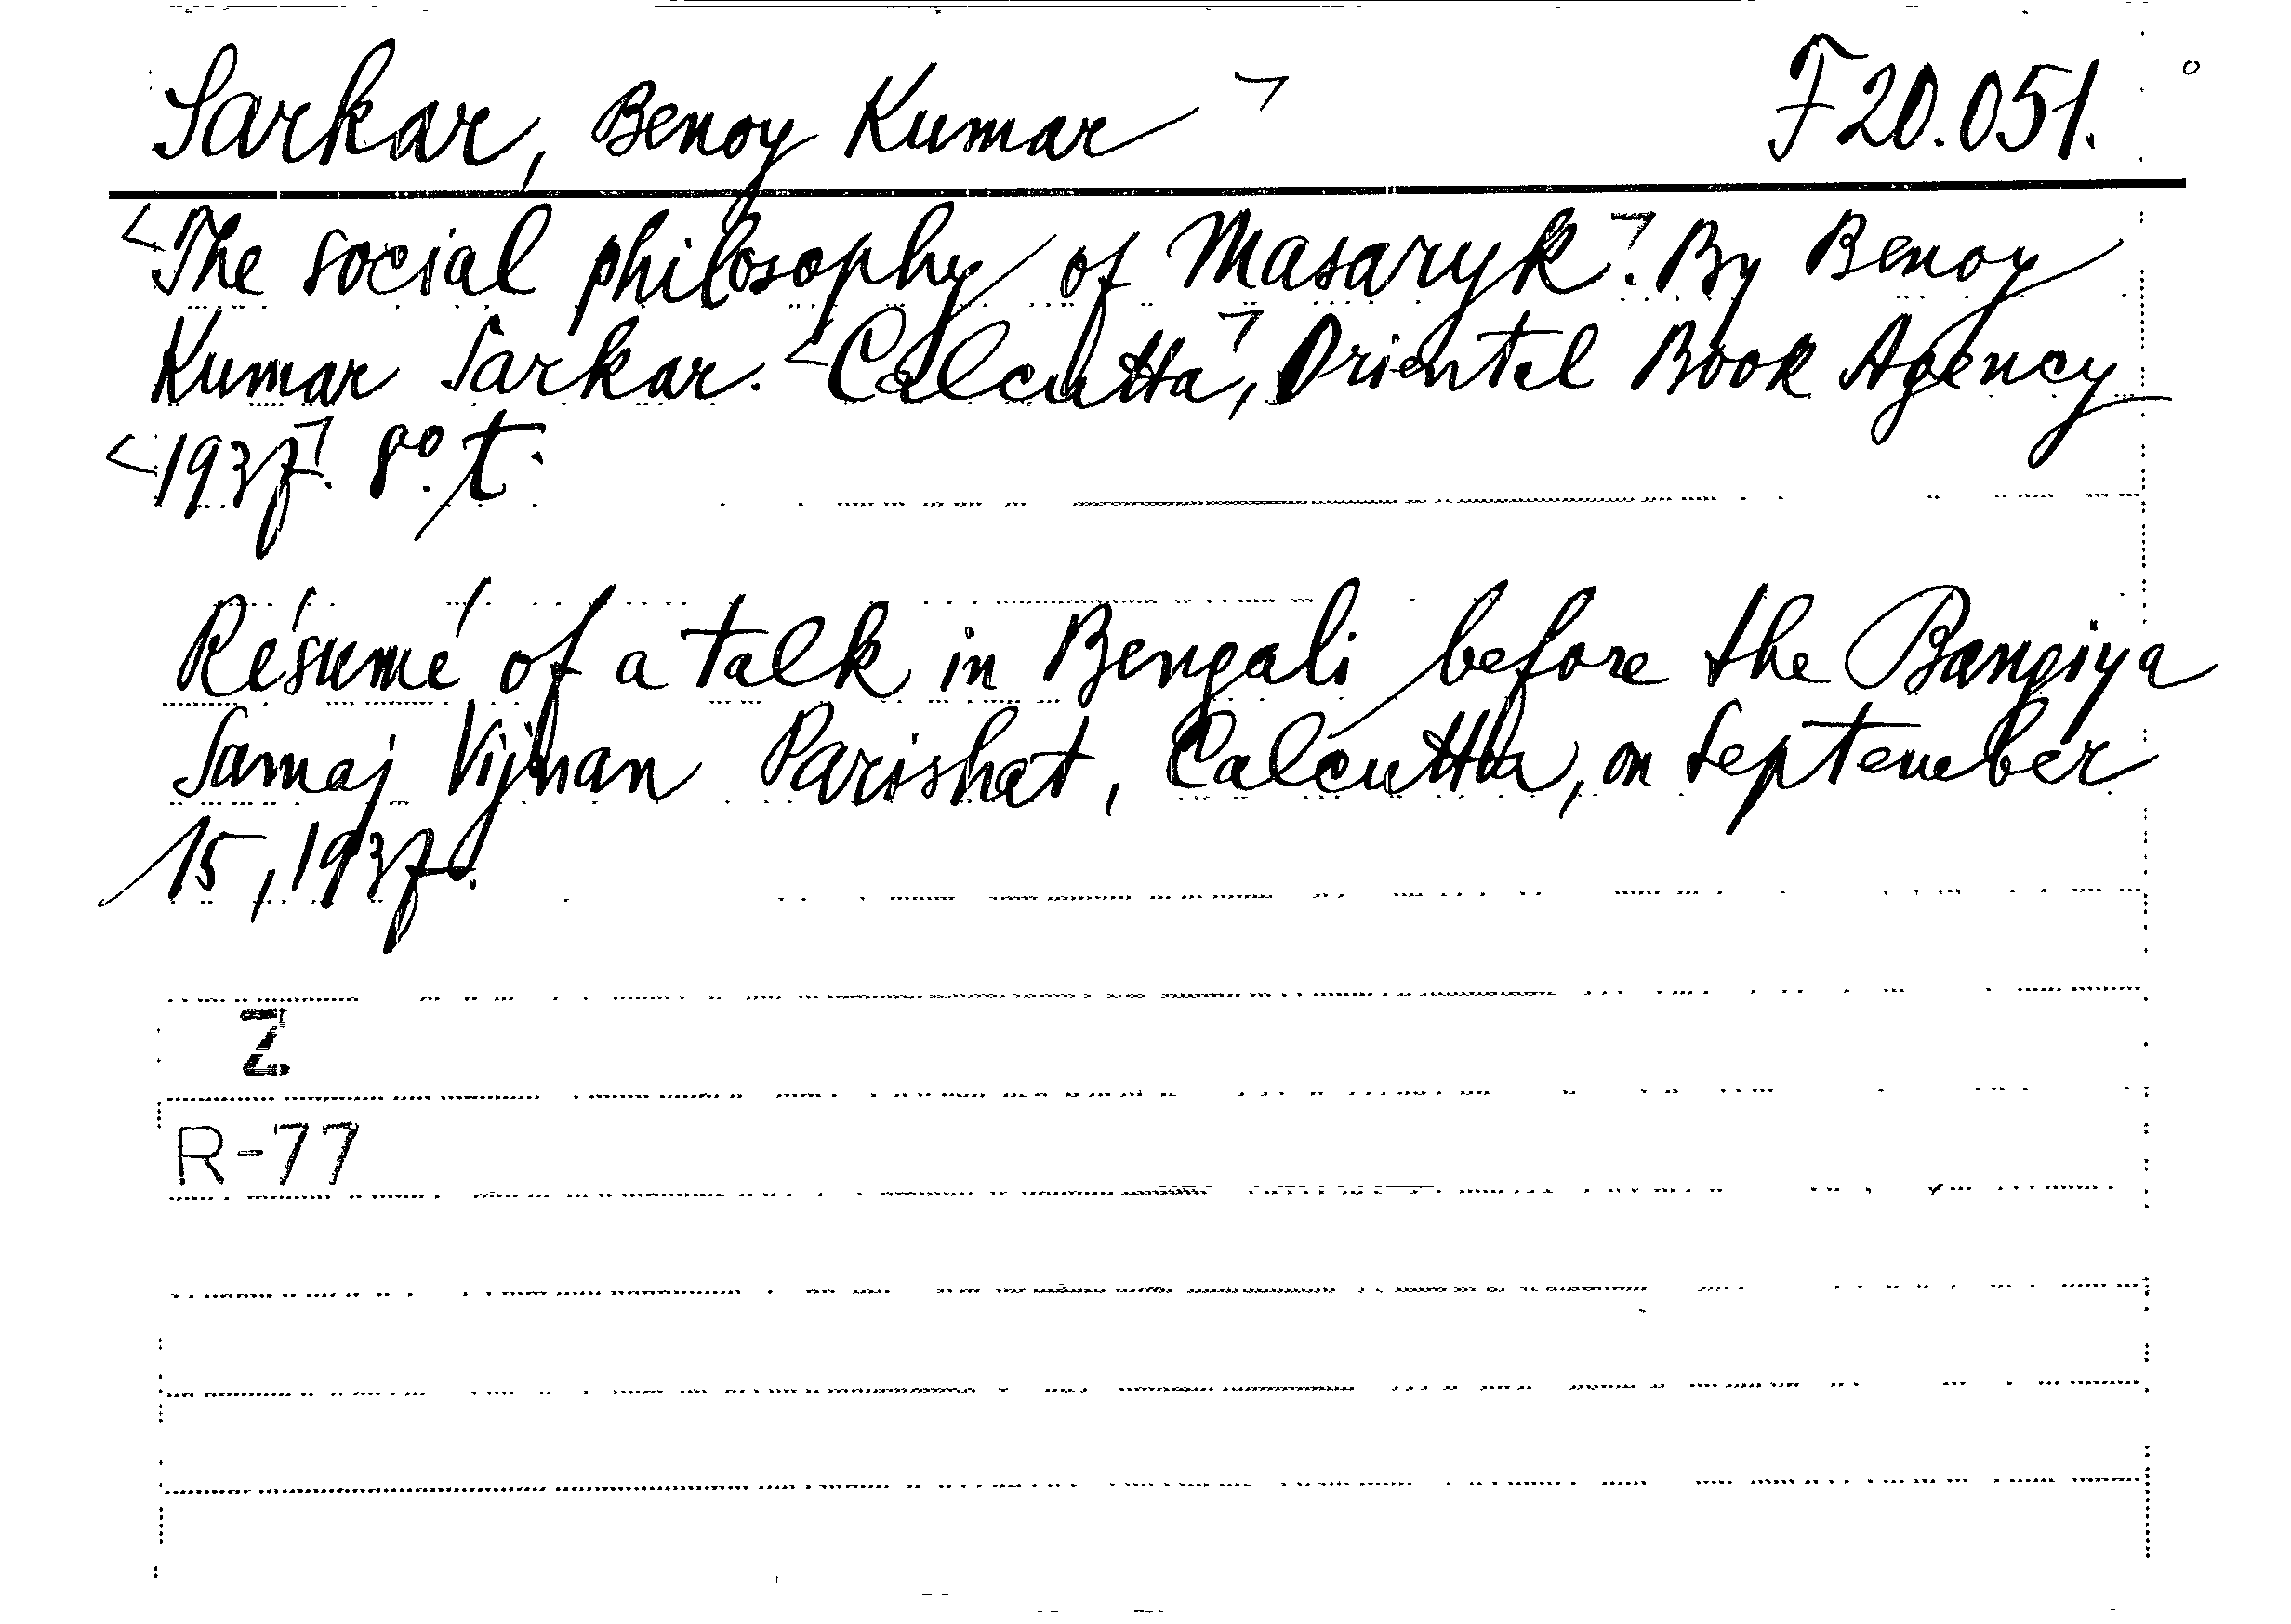 Sarkar, Benoy Kumar ¬ F 20.051.
<The social philosophy of Masaryk¬. By Benoy
Kumar Sarkar. <Calcutta¬, Oriental Book Agency
<1937¬. 8°. t.
Résumé of a talk in Bengali before the Bangiya
Samaj Vijnan Parishat, Calcutta, on September
15, 1937.
Z
R-77